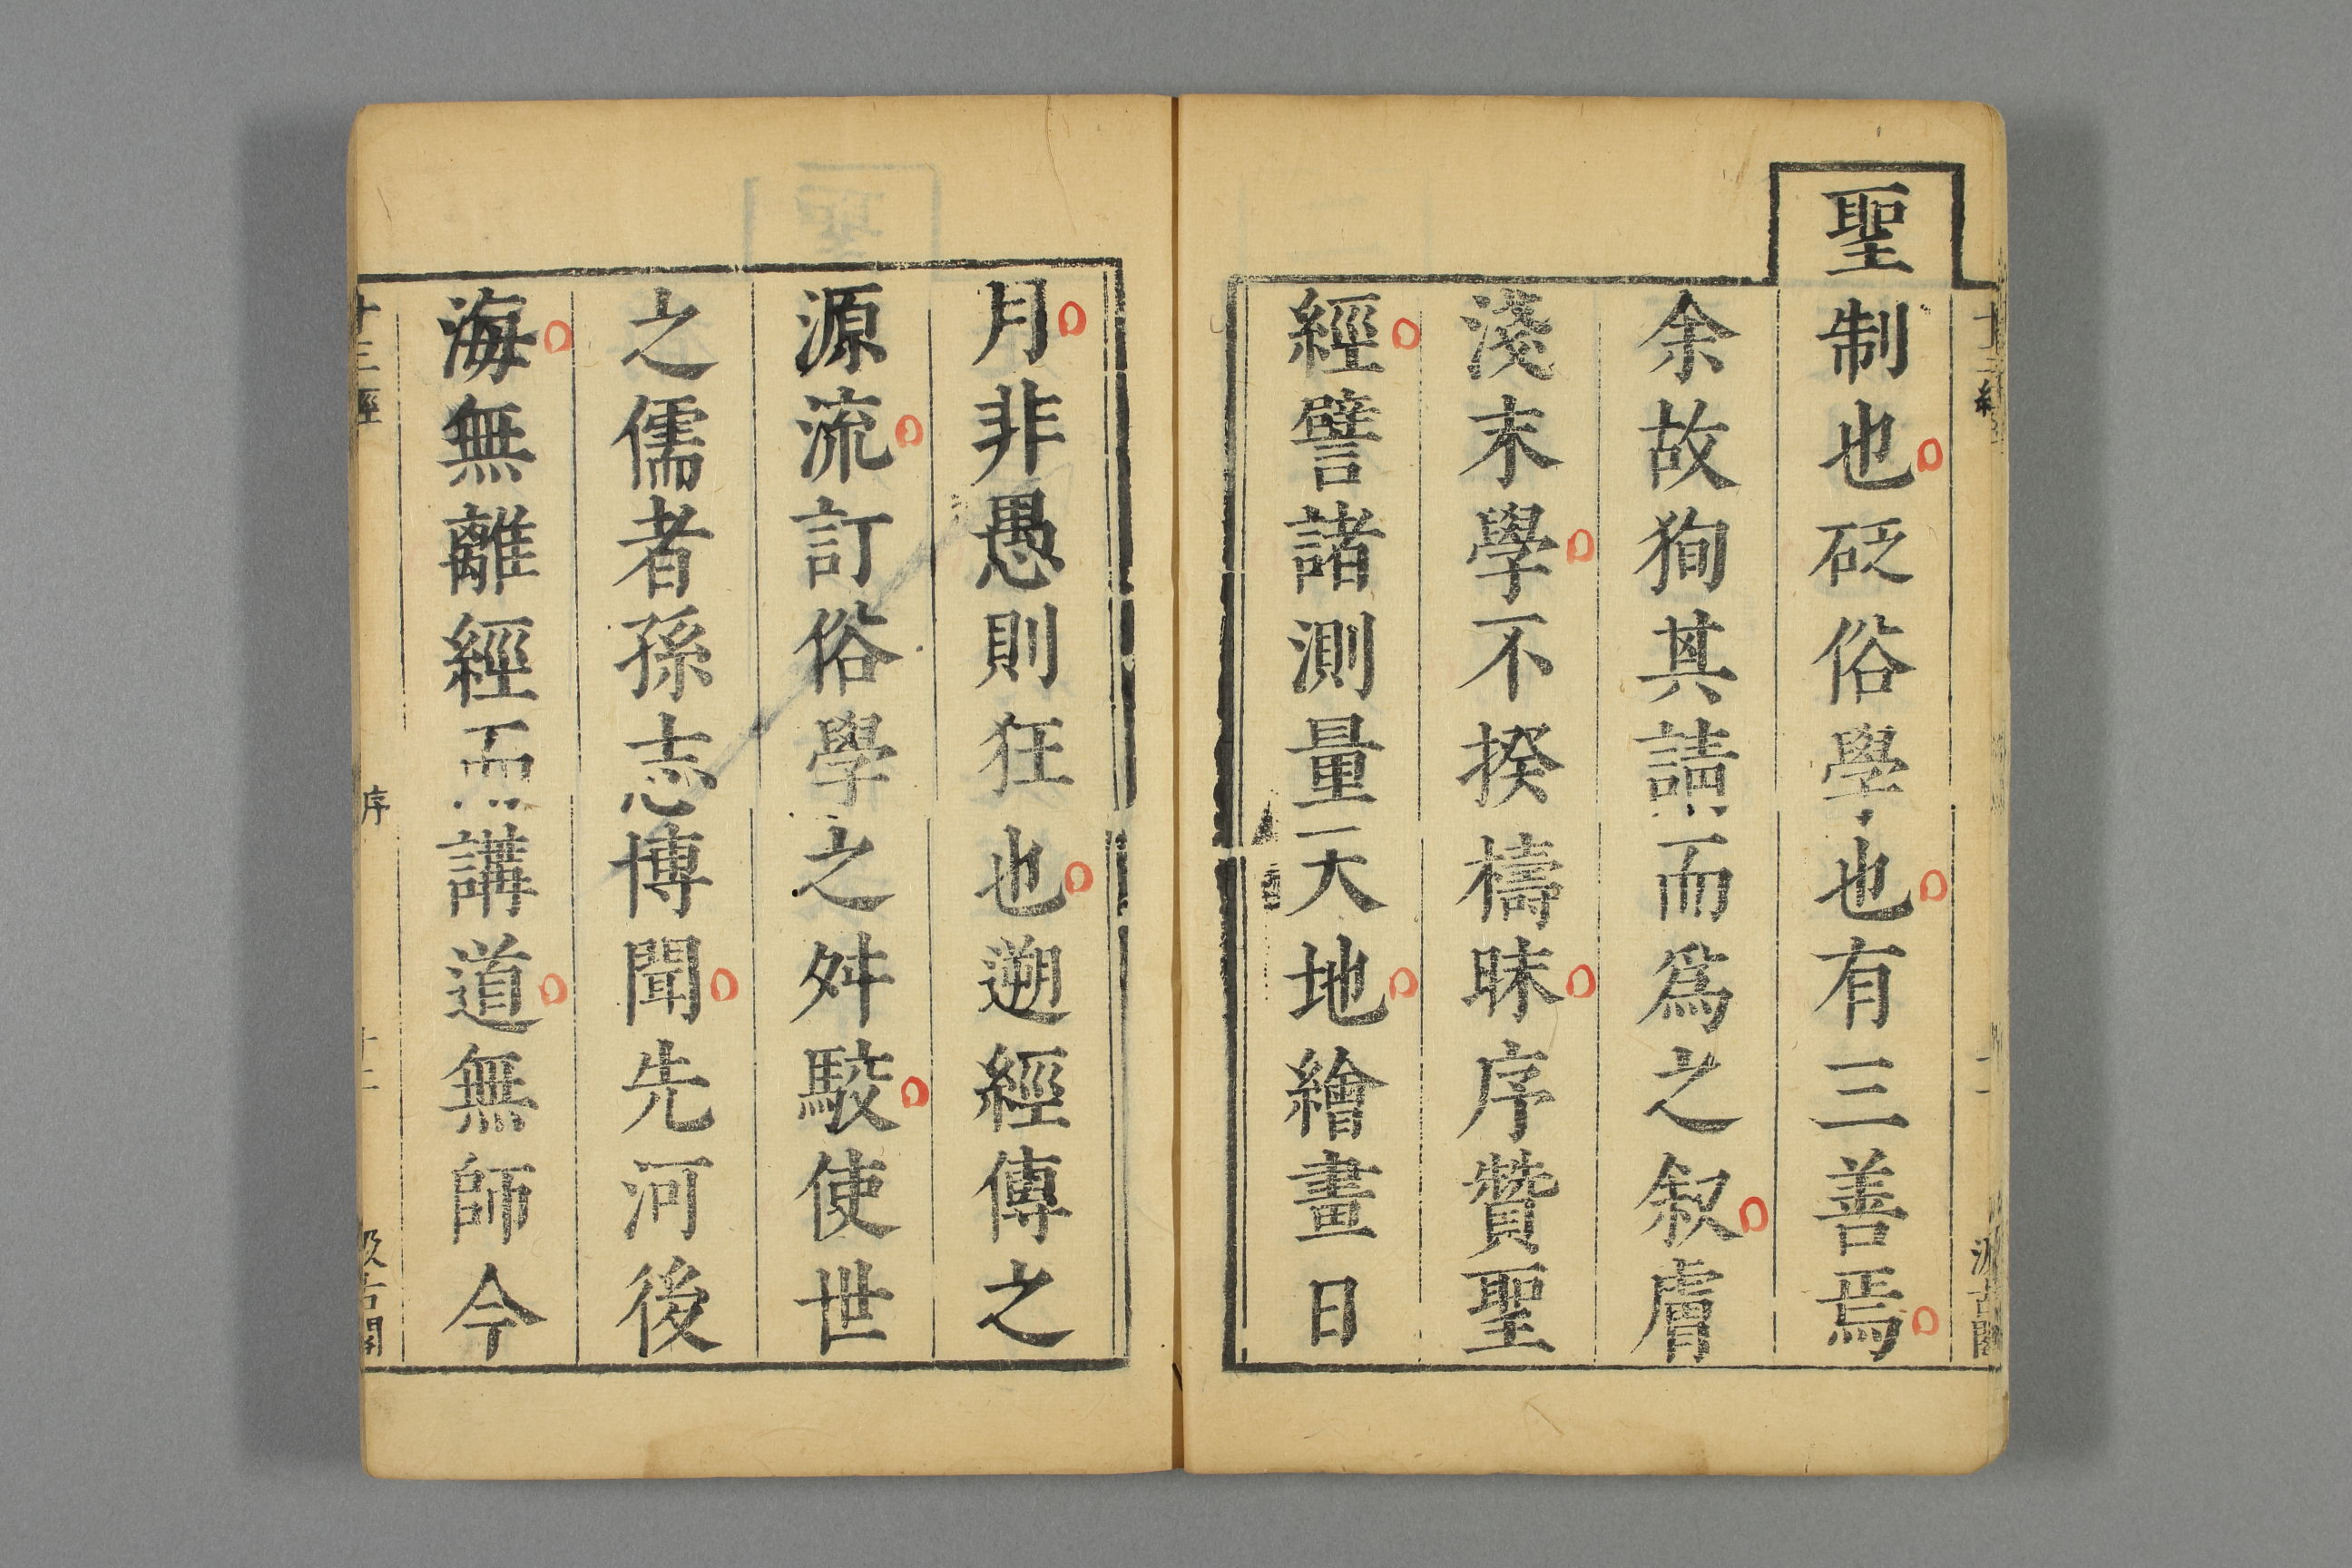 聖制也砭俗學也有三善焉
余故狥其請而爲之叙膚
淺末學不揆檮昧序贊聖
經譬諸測量天地繪畫日
月非愚則狂也遡經傳之
源流訂俗學之舛駮使世
之儒者孫志博聞先河後
海無離經而講道無師今
十三經
序
十二
汲古閣